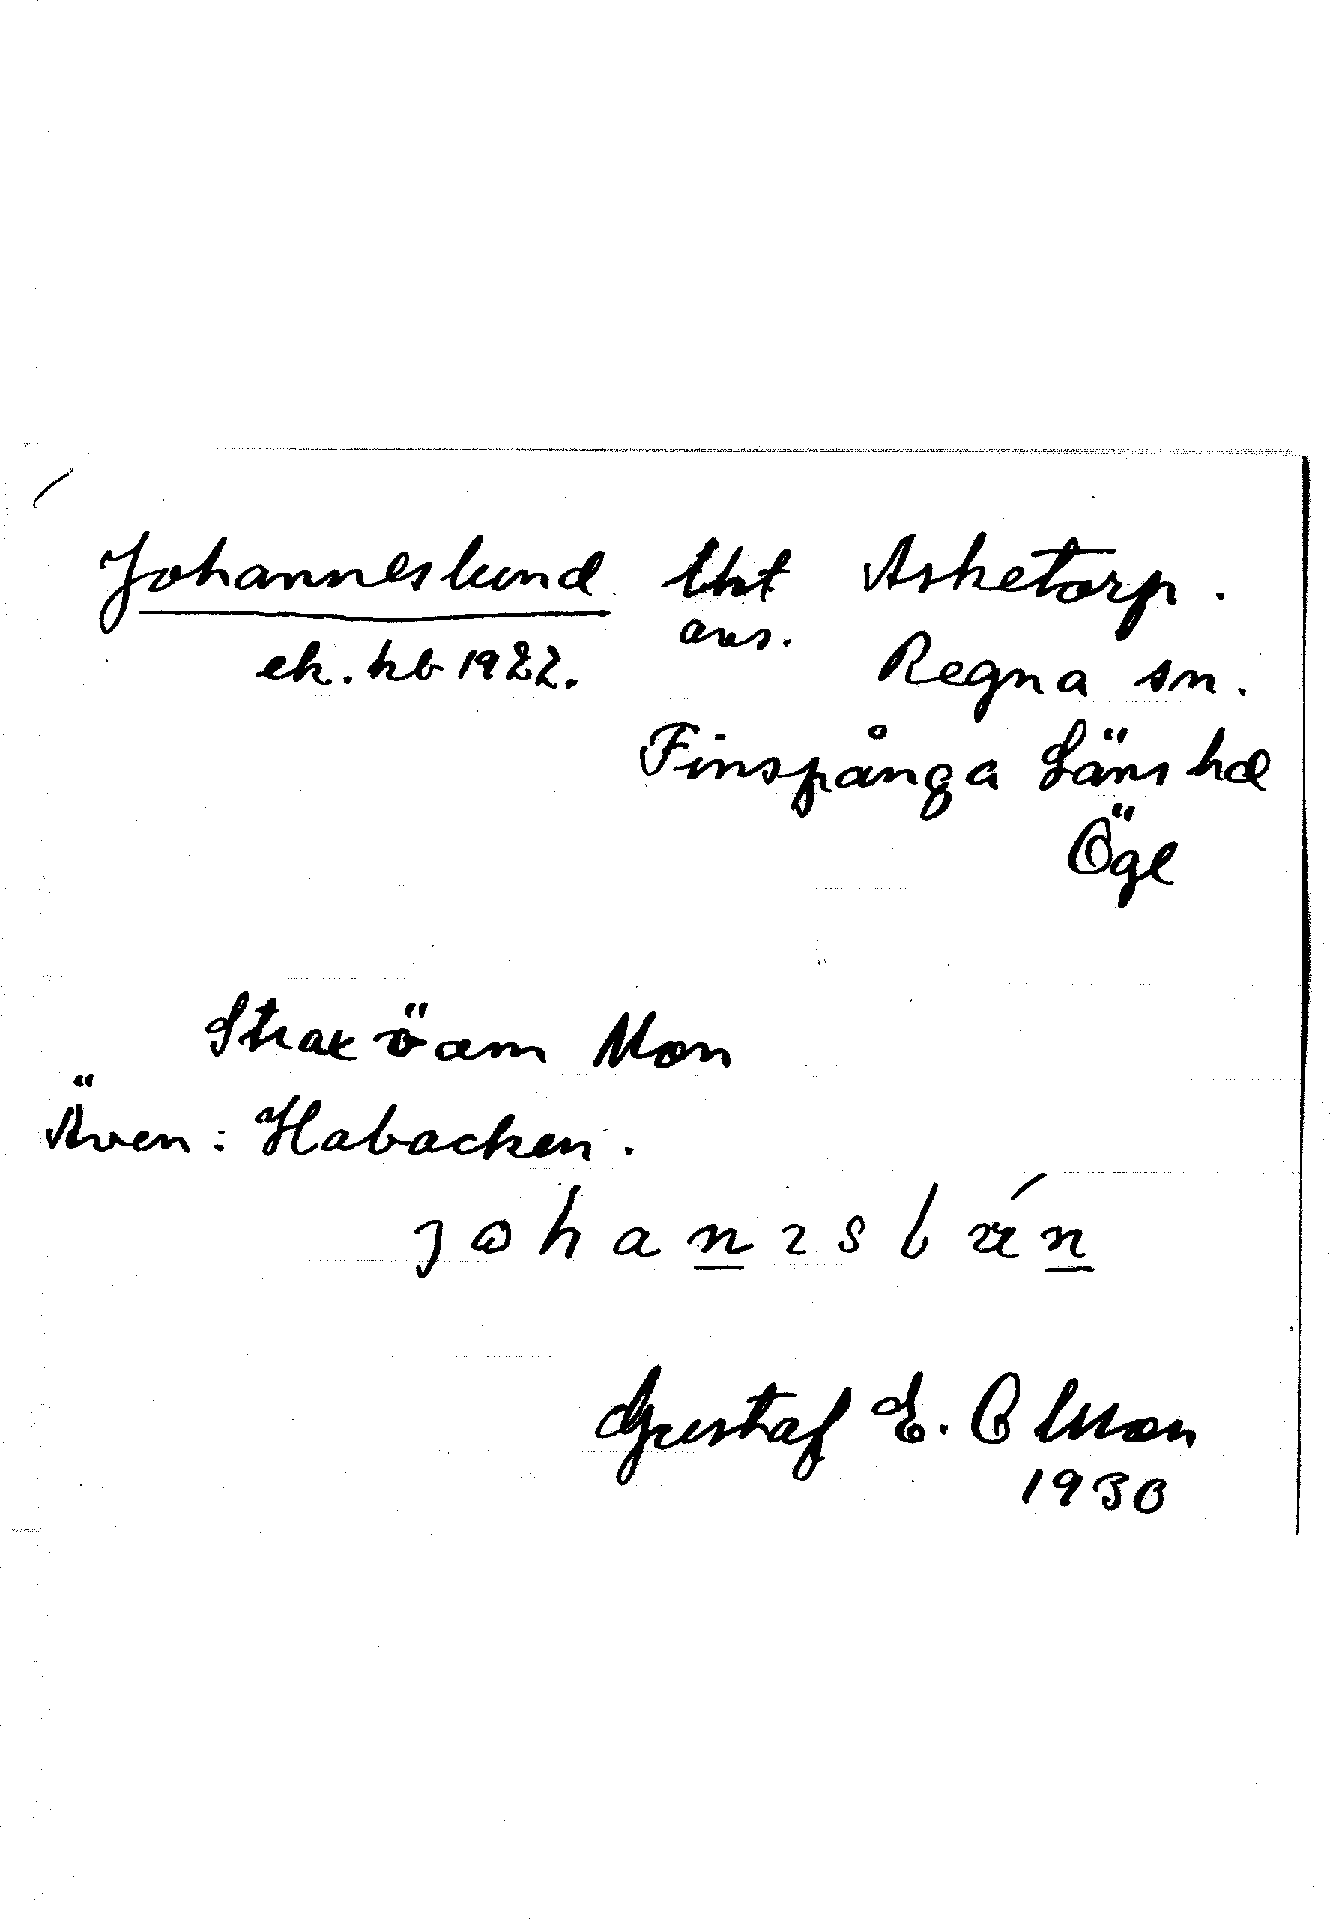 Johanneslund lht Asketorp.
avs.
ek. kb 1922.
Regna sn.
Finspånga Läns hd
Ögl
Strax ö om Mon
Även: Habacken.
Gustaf E. Olsson
1930